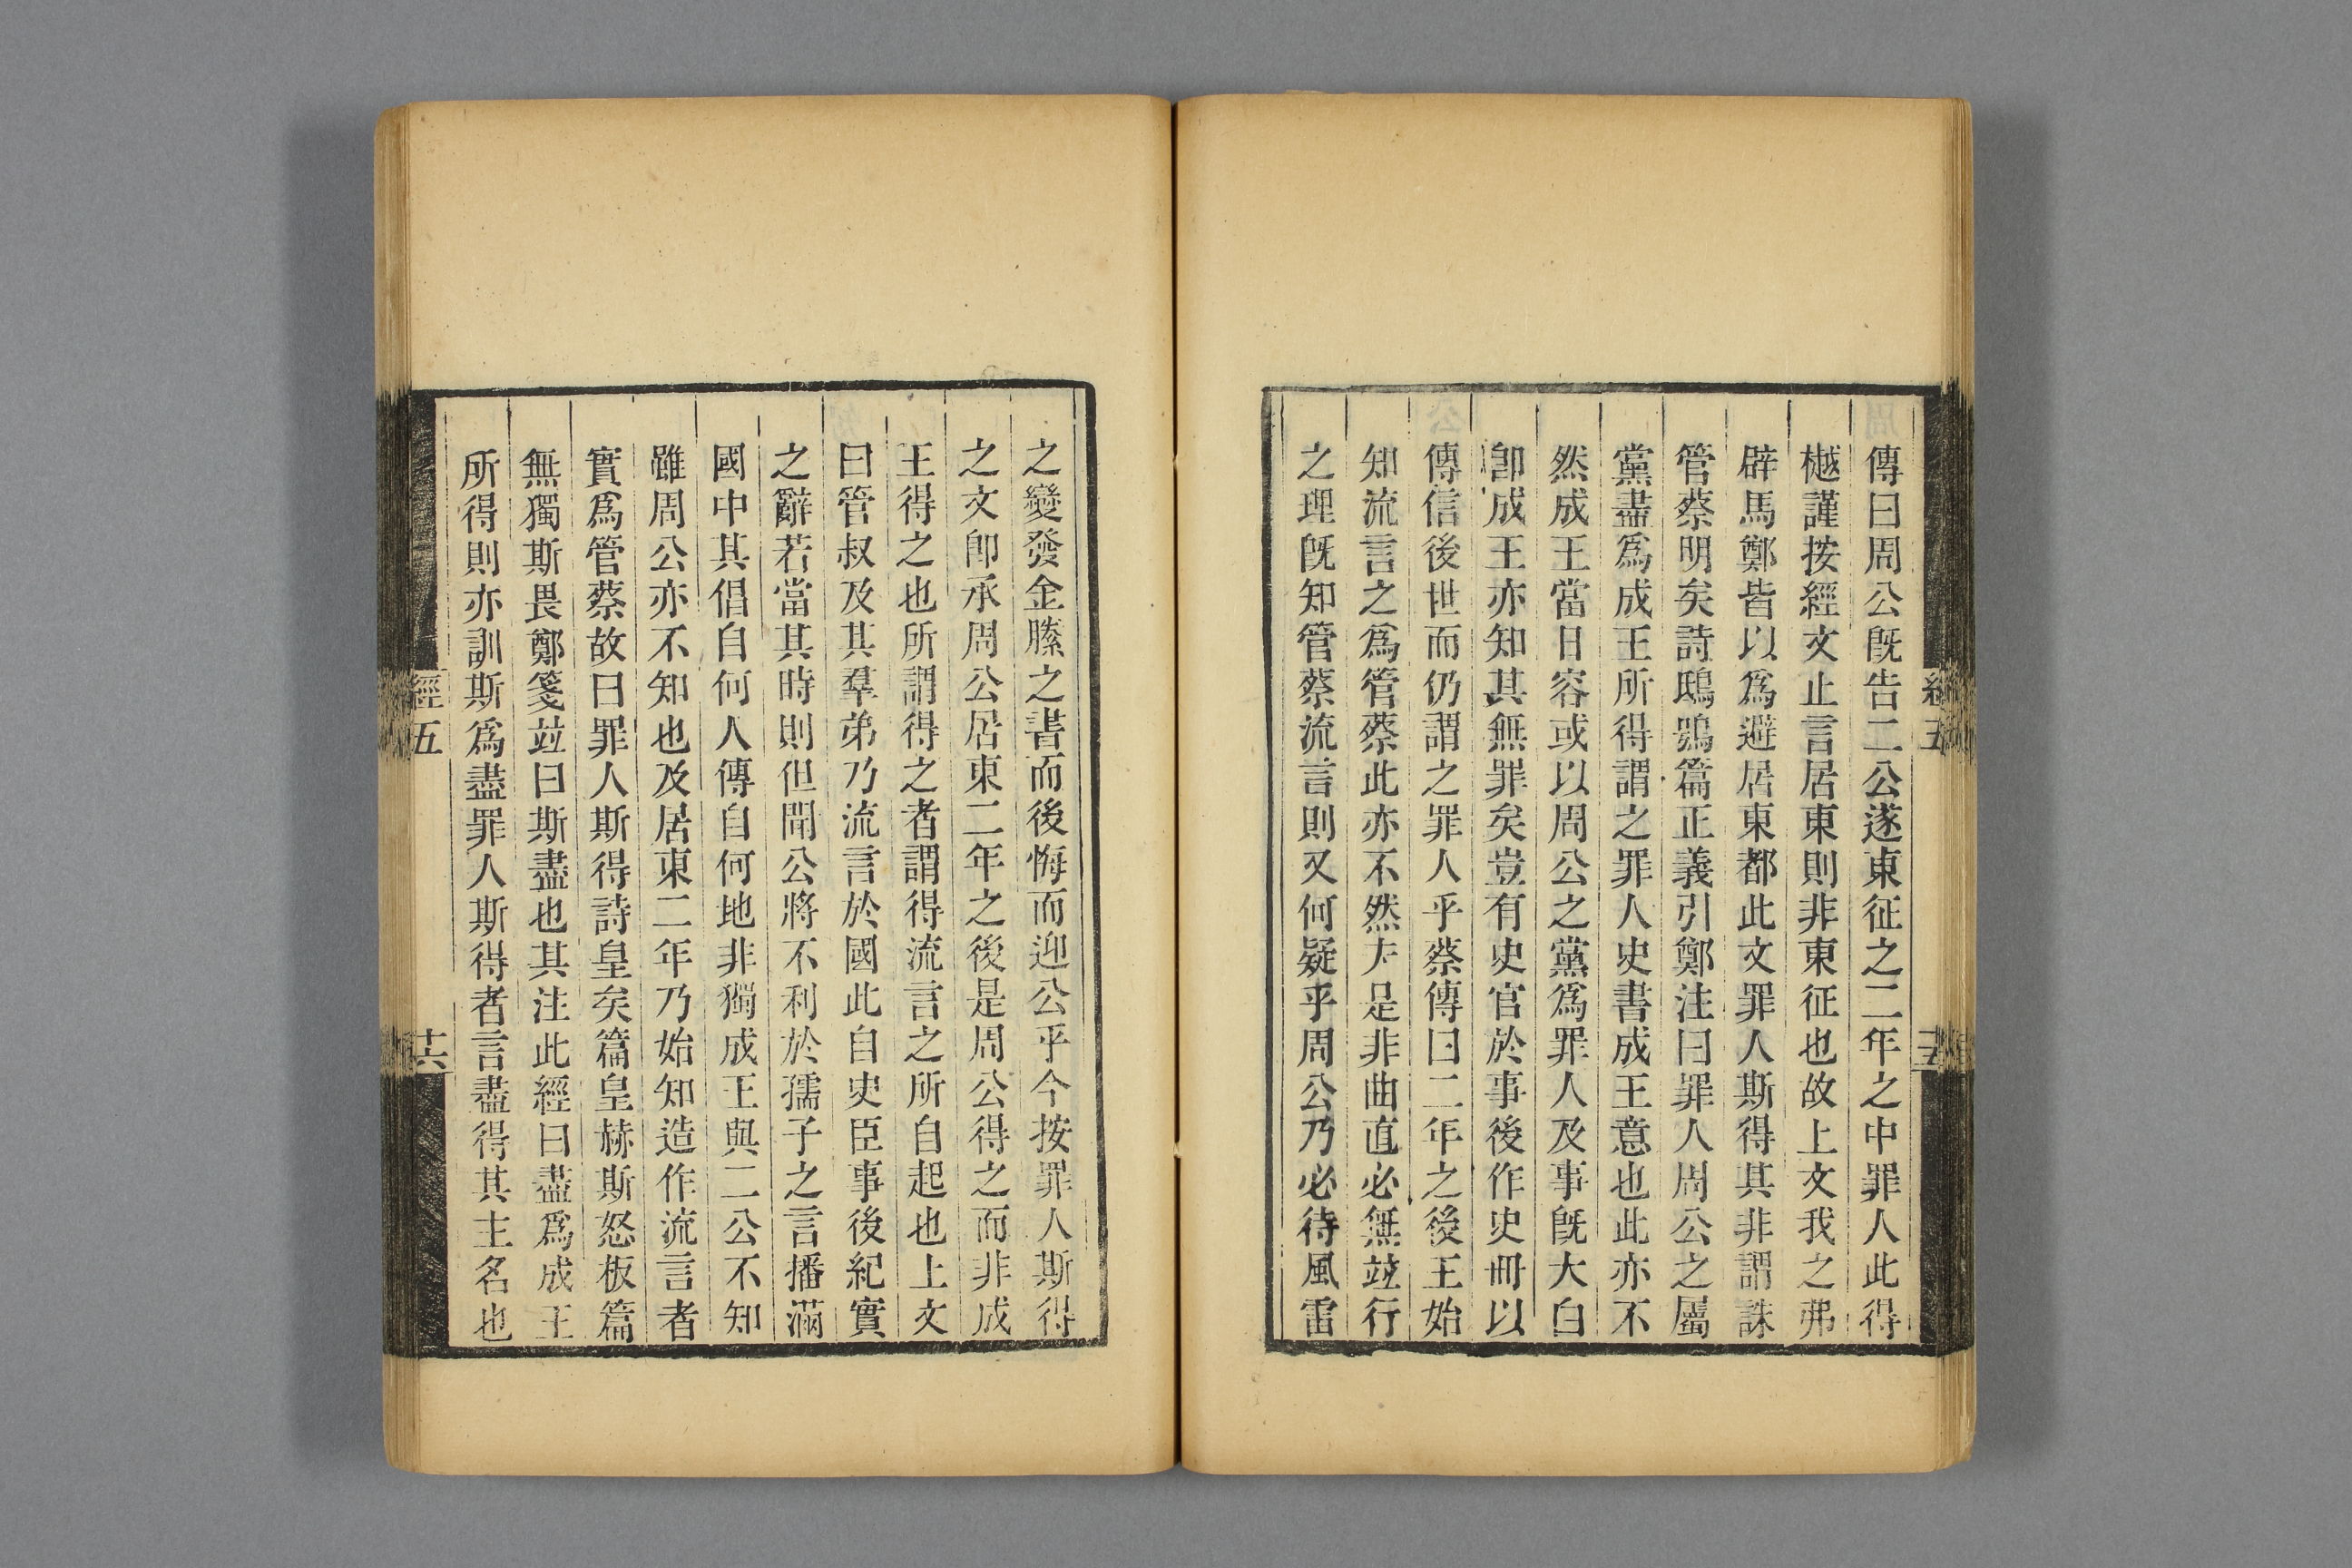 傳曰周公旣告二公遂東征之二年之中罪人此得
樾謹按經文止言居東則非東征也故上文我之弗
辟馬鄭皆以爲避居東都此文罪人斯得其非謂誅
管蔡明矣詩鴟鴞篇正義引鄭注曰罪人周公之屬
黨盡爲成王所得謂之罪人史書成王意也此亦不
然成王當日容或以周公之黨爲罪人及事旣大白
卽成王亦知其無罪矣豈有史官於事後作史冊以
傳信後世而仍謂之罪人乎蔡傳曰二年之後王始
知流言之爲管蔡此亦不然夫是非曲直必無竝行
之理旣知管蔡流言則又何疑乎周公乃必待風雷
之變發金縢之書而後悔而迎公乎今按罪人斯得
之文卽承周公居東二年之後是周公得之而非成
王得之也所謂得之者謂得流言之所自起也上文
曰管叔及其羣弟乃流言於國此自史臣事後紀實
之辭若當其時則但聞公將不利於孺子之言播滿
國中其倡自何人傳自何地非獨成王與二公不知
雖周公亦不知也及居東二年乃始知造作流言者
實爲管蔡故曰罪人斯得詩皇矣篇皇赫斯怒板篇
無獨斯畏鄭箋竝曰斯盡也其注此經曰盡爲成王
所得則亦訓斯爲盡罪人斯得者言盡得其主名也
經五
十六